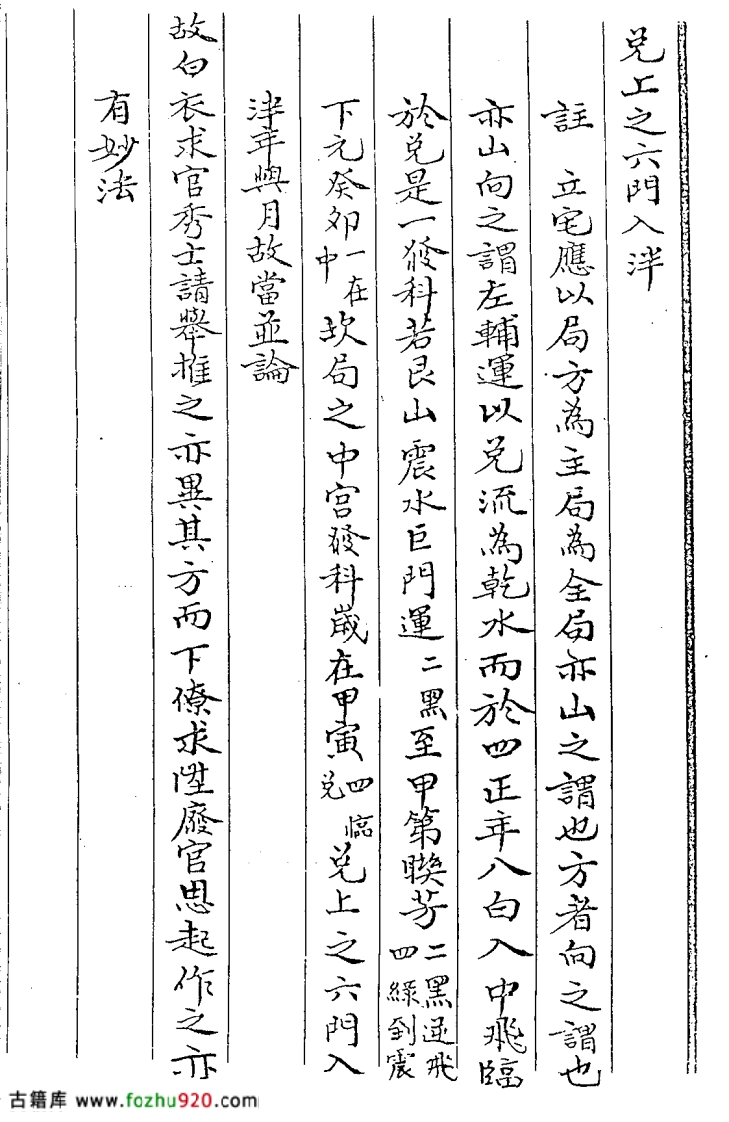 兑上之六門入泮
註 立宅應以局方為主局為全局亦山之謂也方者向之謂也
亦山向之謂左輔運以兑流為乾水而於四正年八白入中飛臨
於兑是一發科若艮山震水巨門運二黑至甲第聯芳二黑逆飛四綠到震
下元癸卯一在中坎局之中宮發科歲在甲寅四臨兑兑上之六門入
泮年與月故當並論
故白衣求官秀士請舉推之亦異其方而下僚求陞廢官思起作之亦
有妙法
古籍库 www.fozhu920.com